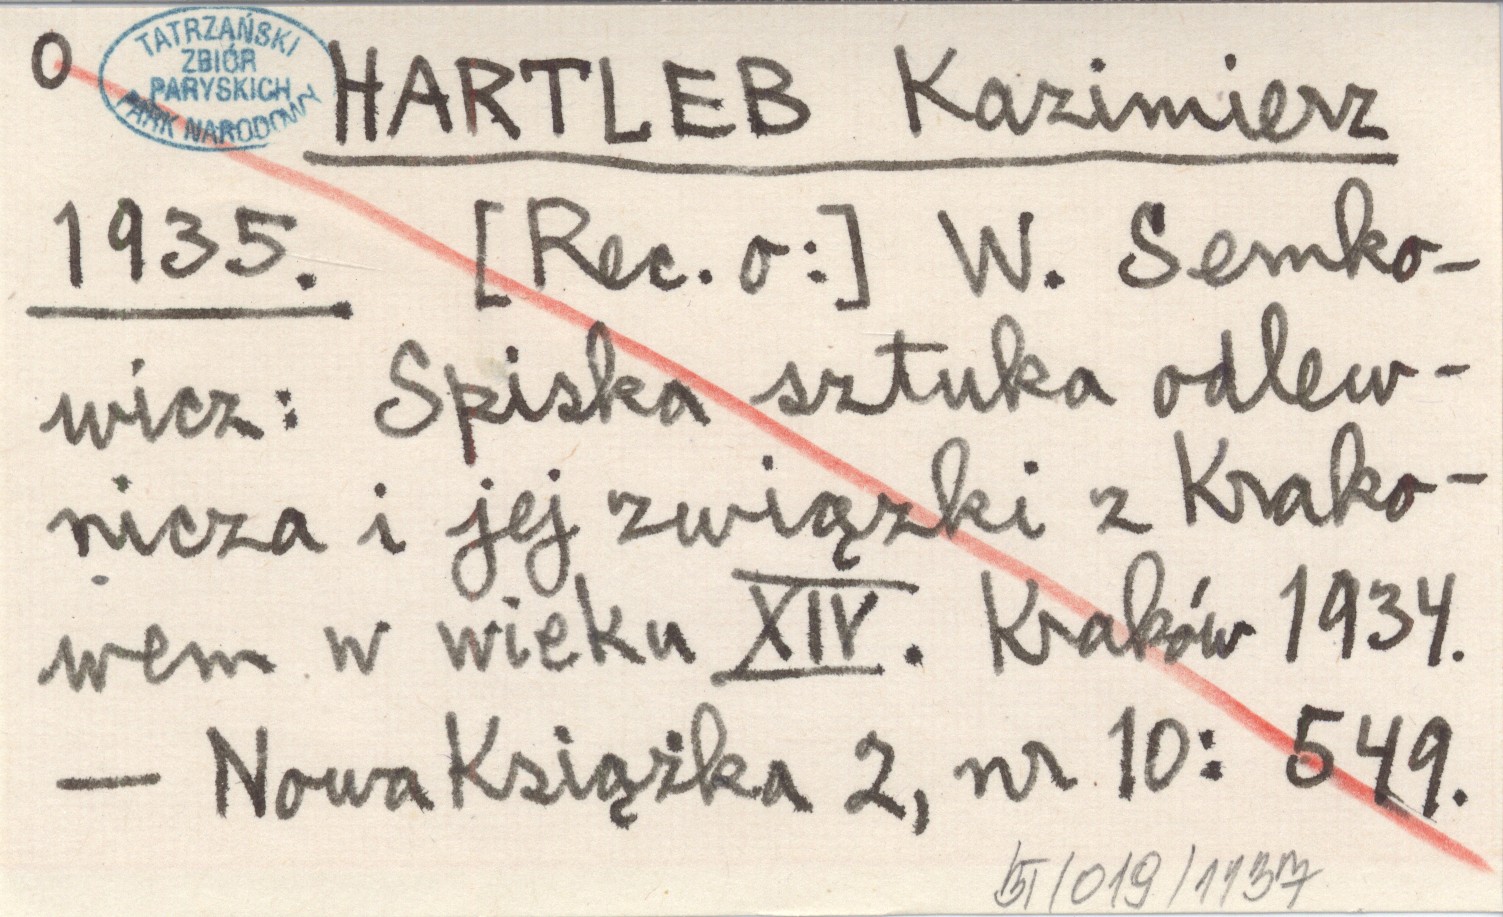 o
TATRZAŃSKI
ZBIÓR
PARYSKICH
PARK NARODOWY
HARTLEB Kazimierz
1935. [Rec. o:] W. Semko-
wicz: Spiska sztuka odlew-
nicza i jej związki z Krako-
wem w wieku XIV. Kraków 1934.
— Nowa Książka 2, nr 10: 549.
/019/1137